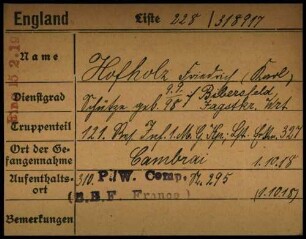 England Liste 228/318917
Name Hofholz Friedrich (Karl)
Dienstgrad Schütze geb. 9.9.98 Bibersfeld, Jagstkr. Wzt
Truppenteil 121. Res. Inf. 1. M.G. Kp.
Ort der Gefangennahme Cambrai 1.10.18
Aufenthaltsort 310. P./W. Comp. Nr. 295
(B.E.F. France) (1.10.18)
Bemerkungen